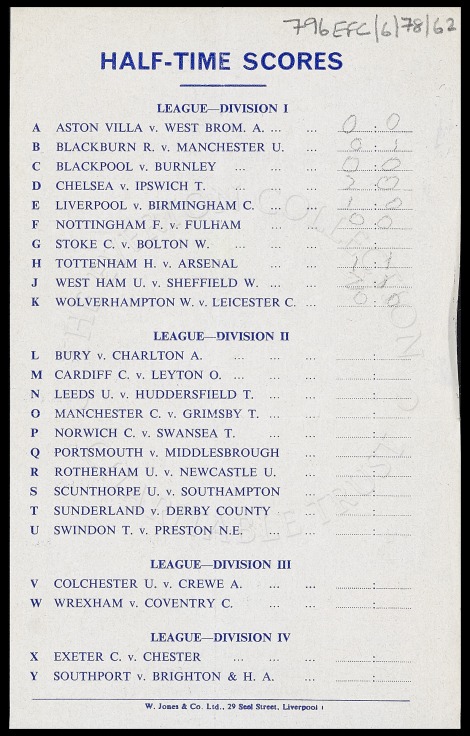 796 EFC/6/78/62
HALF-TIME SCORES
LEAGUE—DIVISION I
A ASTON VILLA v. WEST BROM. A. ... ... 0 : 0
B BLACKBURN R. v. MANCHESTER U. ... 0 : 1
C BLACKPOOL v. BURNLEY ... ... ... 0 : 0
D CHELSEA v. IPSWICH T. ... ... ... 2 : 0
E LIVERPOOL v. BIRMINGHAM C. ... ... 1 : 0
F NOTTINGHAM F. v. FULHAM ... ... 0 : 0
G STOKE C. v. BOLTON W. ... ... ... :
H TOTTENHAM H. v. ARSENAL ... ... :
J WEST HAM U. v. SHEFFIELD W. ... ... :
K WOLVERHAMPTON W. v. LEICESTER C. ... 0 : 0
LEAGUE—DIVISION II
L BURY v. CHARLTON A. ... ... ... :
M CARDIFF C. v. LEYTON O. ... ... ... :
N LEEDS U. v. HUDDERSFIELD T. ... ... :
O MANCHESTER C. v. GRIMSBY T. ... ... :
P NORWICH C. v. SWANSEA T. ... ... :
Q PORTSMOUTH v. MIDDLESBROUGH ... :
R ROTHERHAM U. v. NEWCASTLE U. ... :
S SCUNTHORPE U. v. SOUTHAMPTON ... :
T SUNDERLAND v. DERBY COUNTY ... :
U SWINDON T. v. PRESTON N.E. ... ... :
LEAGUE—DIVISION III
V COLCHESTER U. v. CREWE A. ... ... :
W WREXHAM v. COVENTRY C. ... ... :
LEAGUE—DIVISION IV
X EXETER C. v. CHESTER ... ... ... :
Y SOUTHPORT v. BRIGHTON & H. A. ... :
W. Jones & Co. Ltd., 29 Seel Street, Liverpool 1